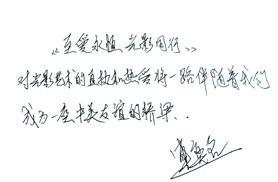 《至爱永恒 光影同行》
对光影艺术的直执和热爱将一路伴随着我们
成为一座中美友谊的桥梁..